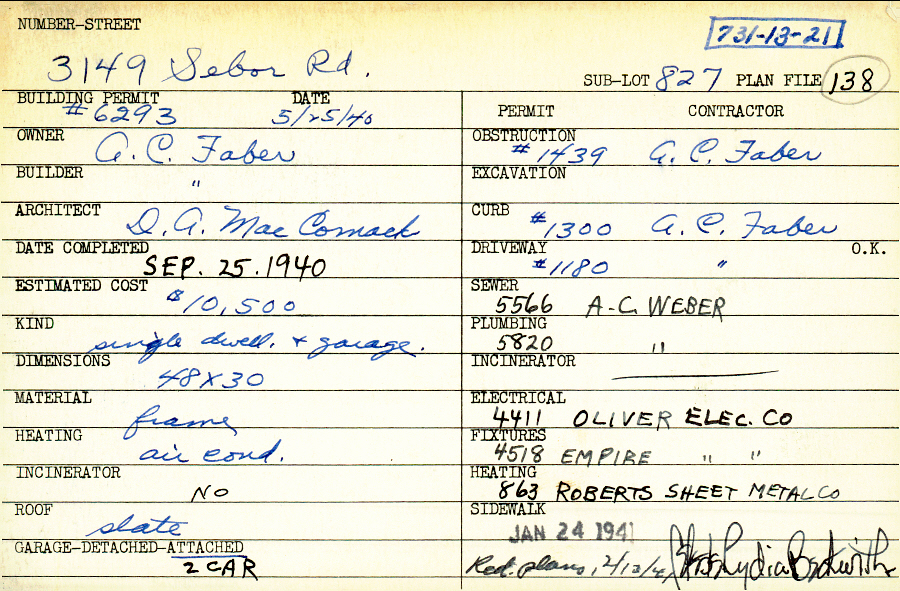 NUMBER-STREET
731-13-21
3149 Sebor Rd.
SUB-LOT 827 PLAN FILE 138
BUILDING PERMIT DATE
#6293 5/25/40
PERMIT CONTRACTOR
OWNER A. C. Faber
OBSTRUCTION #1439 A. C. Faber
BUILDER "
EXCAVATION
ARCHITECT D. A. Mac Comack
CURB #1300 A. C. Faber
DATE COMPLETED SEP. 25. 1940
DRIVEWAY #1180 " O.K.
ESTIMATED COST $10,500
SEWER 5566 A-C. WEBER
KIND single dwell. + garage.
PLUMBING 5820 "
DIMENSIONS 48X30
INCINERATOR
MATERIAL frame
ELECTRICAL 4411 OLIVER ELEC. CO
HEATING air cond.
FIXTURES 4518 EMPIRE " "
INCINERATOR NO
HEATING 863 ROBERTS SHEET METAL CO
ROOF slate
SIDEWALK JAN 24 1941
GARAGE-DETACHED-ATTACHED
2 CAR
Red. plans, Lydia